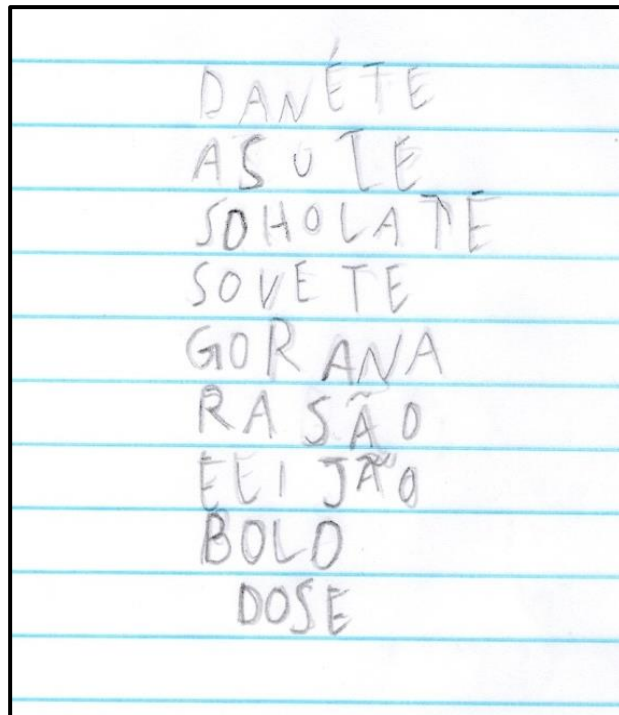 DANÉTE
ASUTE
SOHOLATE
SOVETE
GORANA
RASÃO
FEIJÃO
BOLO
DOSE